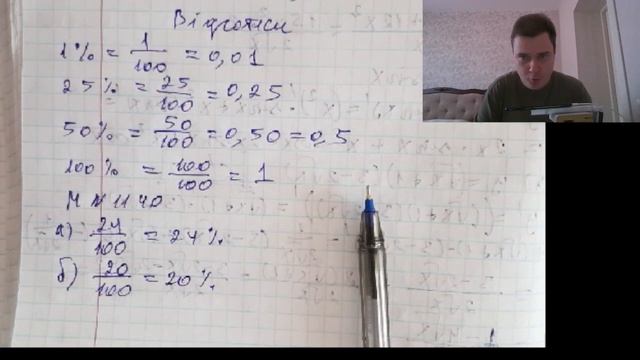 Відсотки
1% = 1/100 = 0,01
25% = 25/100 = 0,25
50% = 50/100 = 0,50 = 0,5
100% = 100/100 = 1
№ 1140
а) 24/100 = 24%
б) 20/100 = 20%